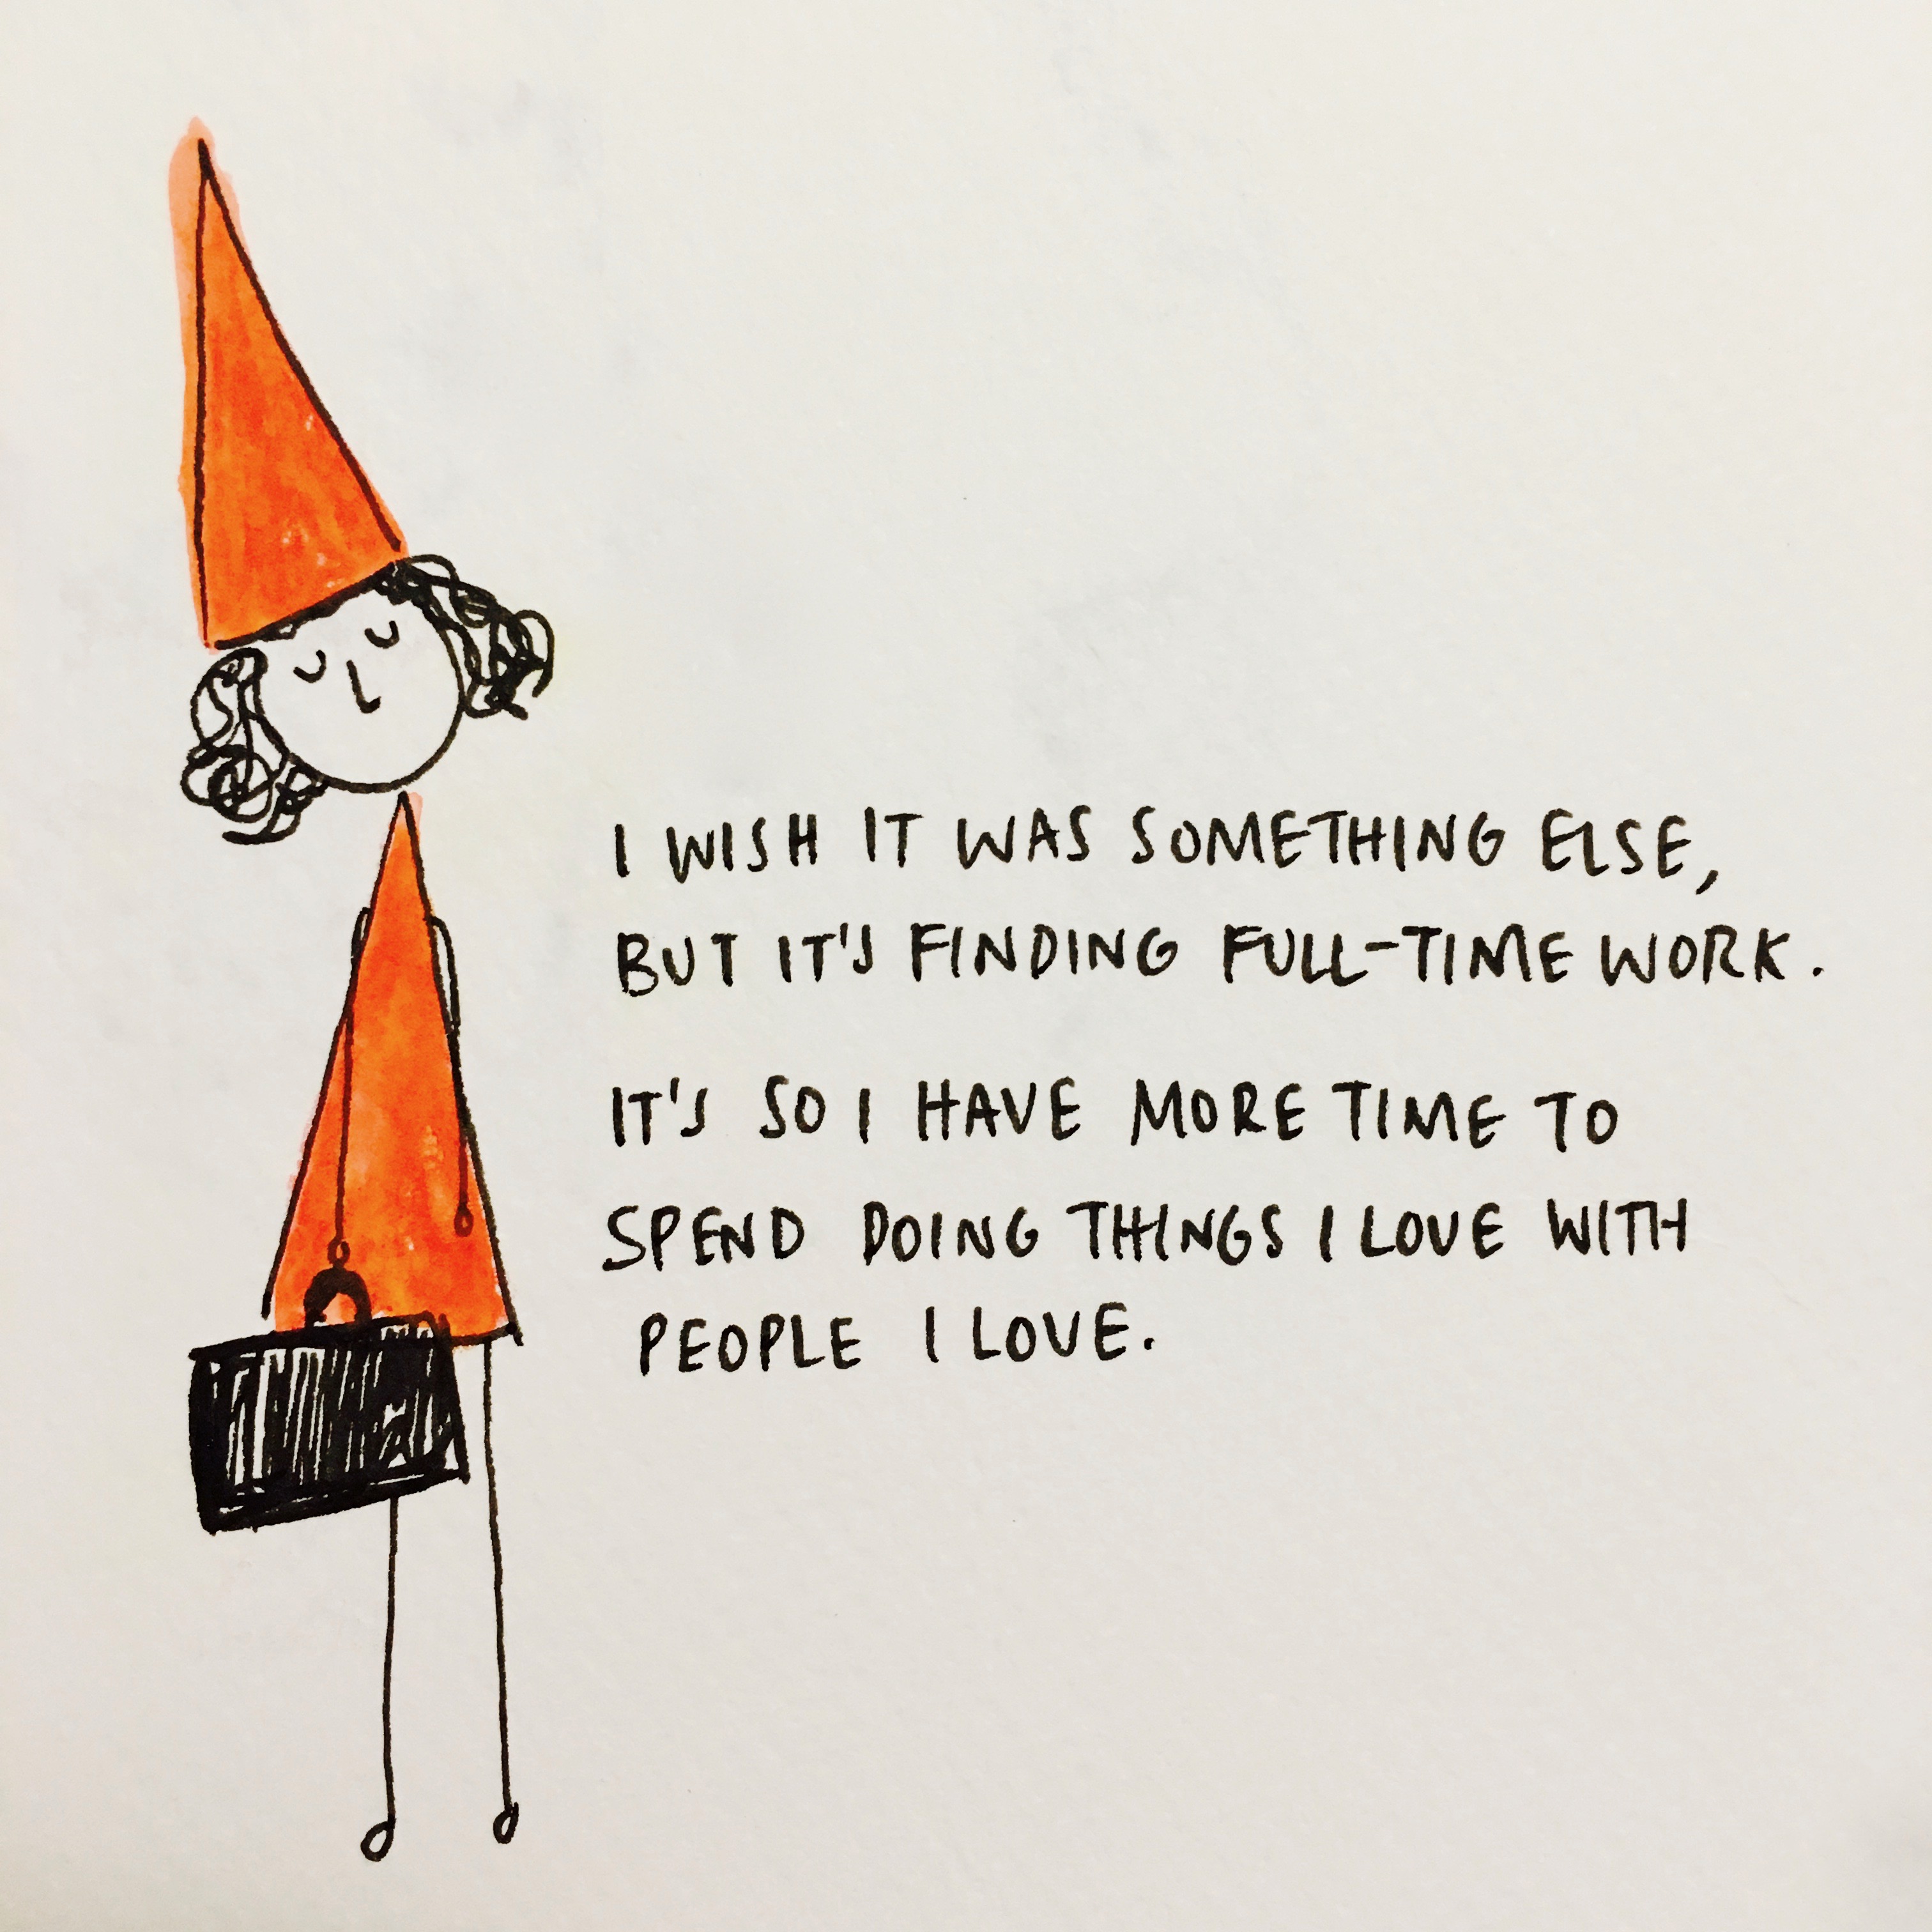 I WISH IT WAS SOMETHING ELSE,
BUT IT'S FINDING FULL-TIME WORK.
IT'S SO I HAVE MORE TIME TO
SPEND DOING THINGS I LOVE WITH
PEOPLE I LOVE.